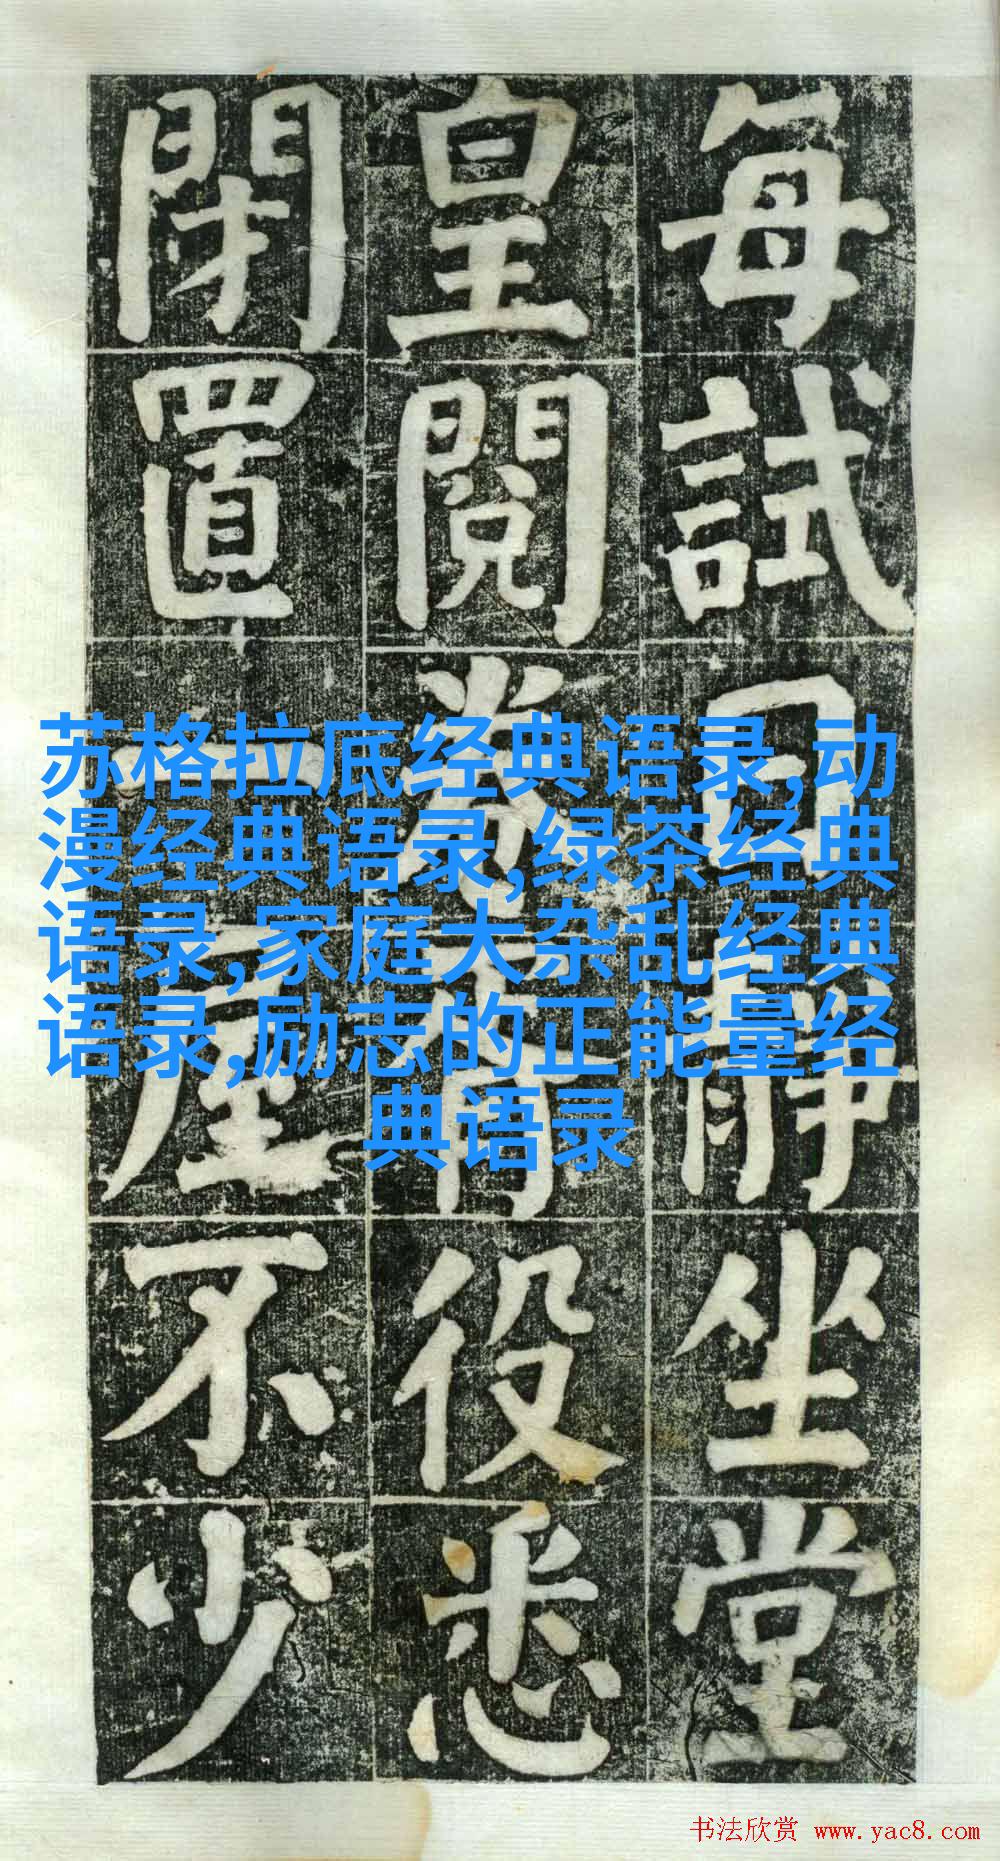 每試日靜坐堂
皇閱卷胥役悉
閉置一屋不少
苏格拉底经典语录,动
漫经典语录,绿茶经典
语录,家庭大杂乱经典
语录,励志的正能量经
典语录
书法欣赏 www.yac8.com